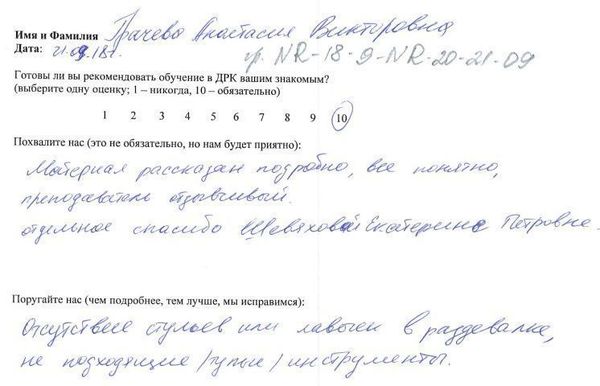 Имя и Фамилия Грачева Анастасия Викторовна
Дата: 21.09.18г. гр. NR-18-9-NR-20-21-09
Готовы ли вы рекомендовать обучение в ДРК вашим знакомым?
(выберите одну оценку; 1 – никогда, 10 – обязательно)
1 2 3 4 5 6 7 8 9 10
Похвалите нас (это не обязательно, но нам будет приятно):
Материал рассказан подробно, все понятно,
преподаватель отзывчивый.
отдельное спасибо Шевяховой Екатерине Петровне.
Поругайте нас (чем подробнее, тем лучше, мы исправимся):
Отсутствие стульев или лавочек в раздевалке,
не подходящие /тупые/ инструменты.